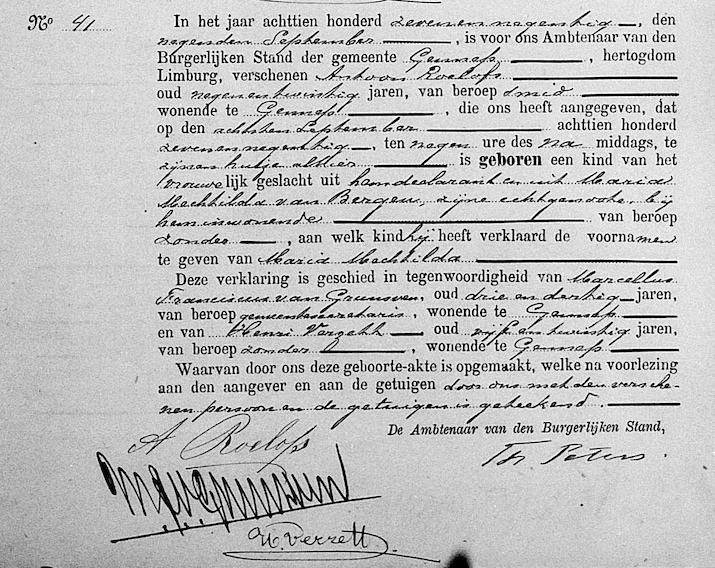 No 41
In het jaar achttien honderd zevenennegentig, den
negenden September, is voor ons Ambtenaar van den
Burgerlijken Stand der gemeente Gennep, hertogdom
Limburg, verschenen Antoon Roelofs
oud negenentwintig jaren, van beroep smid
wonende te Gennep, die ons heeft aangegeven, dat
op den achtsten September achttien honderd
zevenennegentig, ten negen ure des na middags, te
zijnen huize alhier is geboren een kind van het
vrouwelijk geslacht uit hem declarant en uit Maria
Mechtilda van Bergen, zijne echtgenoote, bij
hem inwonende van beroep
zonder, aan welk kind hij heeft verklaard de voornamen
te geven van Maria Mechtilda
Deze verklaring is geschied in tegenwoordigheid van Marcellus
Franciscus van Grunsven, oud drie en dertig jaren,
van beroep gemeentesecretaris, wonende te Gennep
en van Henri oud vijf en twintig jaren,
van beroep zonder, wonende te Gennep
Waarvan door ons deze geboorte-akte is opgemaakt, welke na voorlezing
aan den aangever en aan de getuigen door ons met den versche-
nen persoon en de getuigen is geteekend.
De Ambtenaar van den Burgerlijken Stand,
A Roelofs
Th. Peters.
H. Verrett